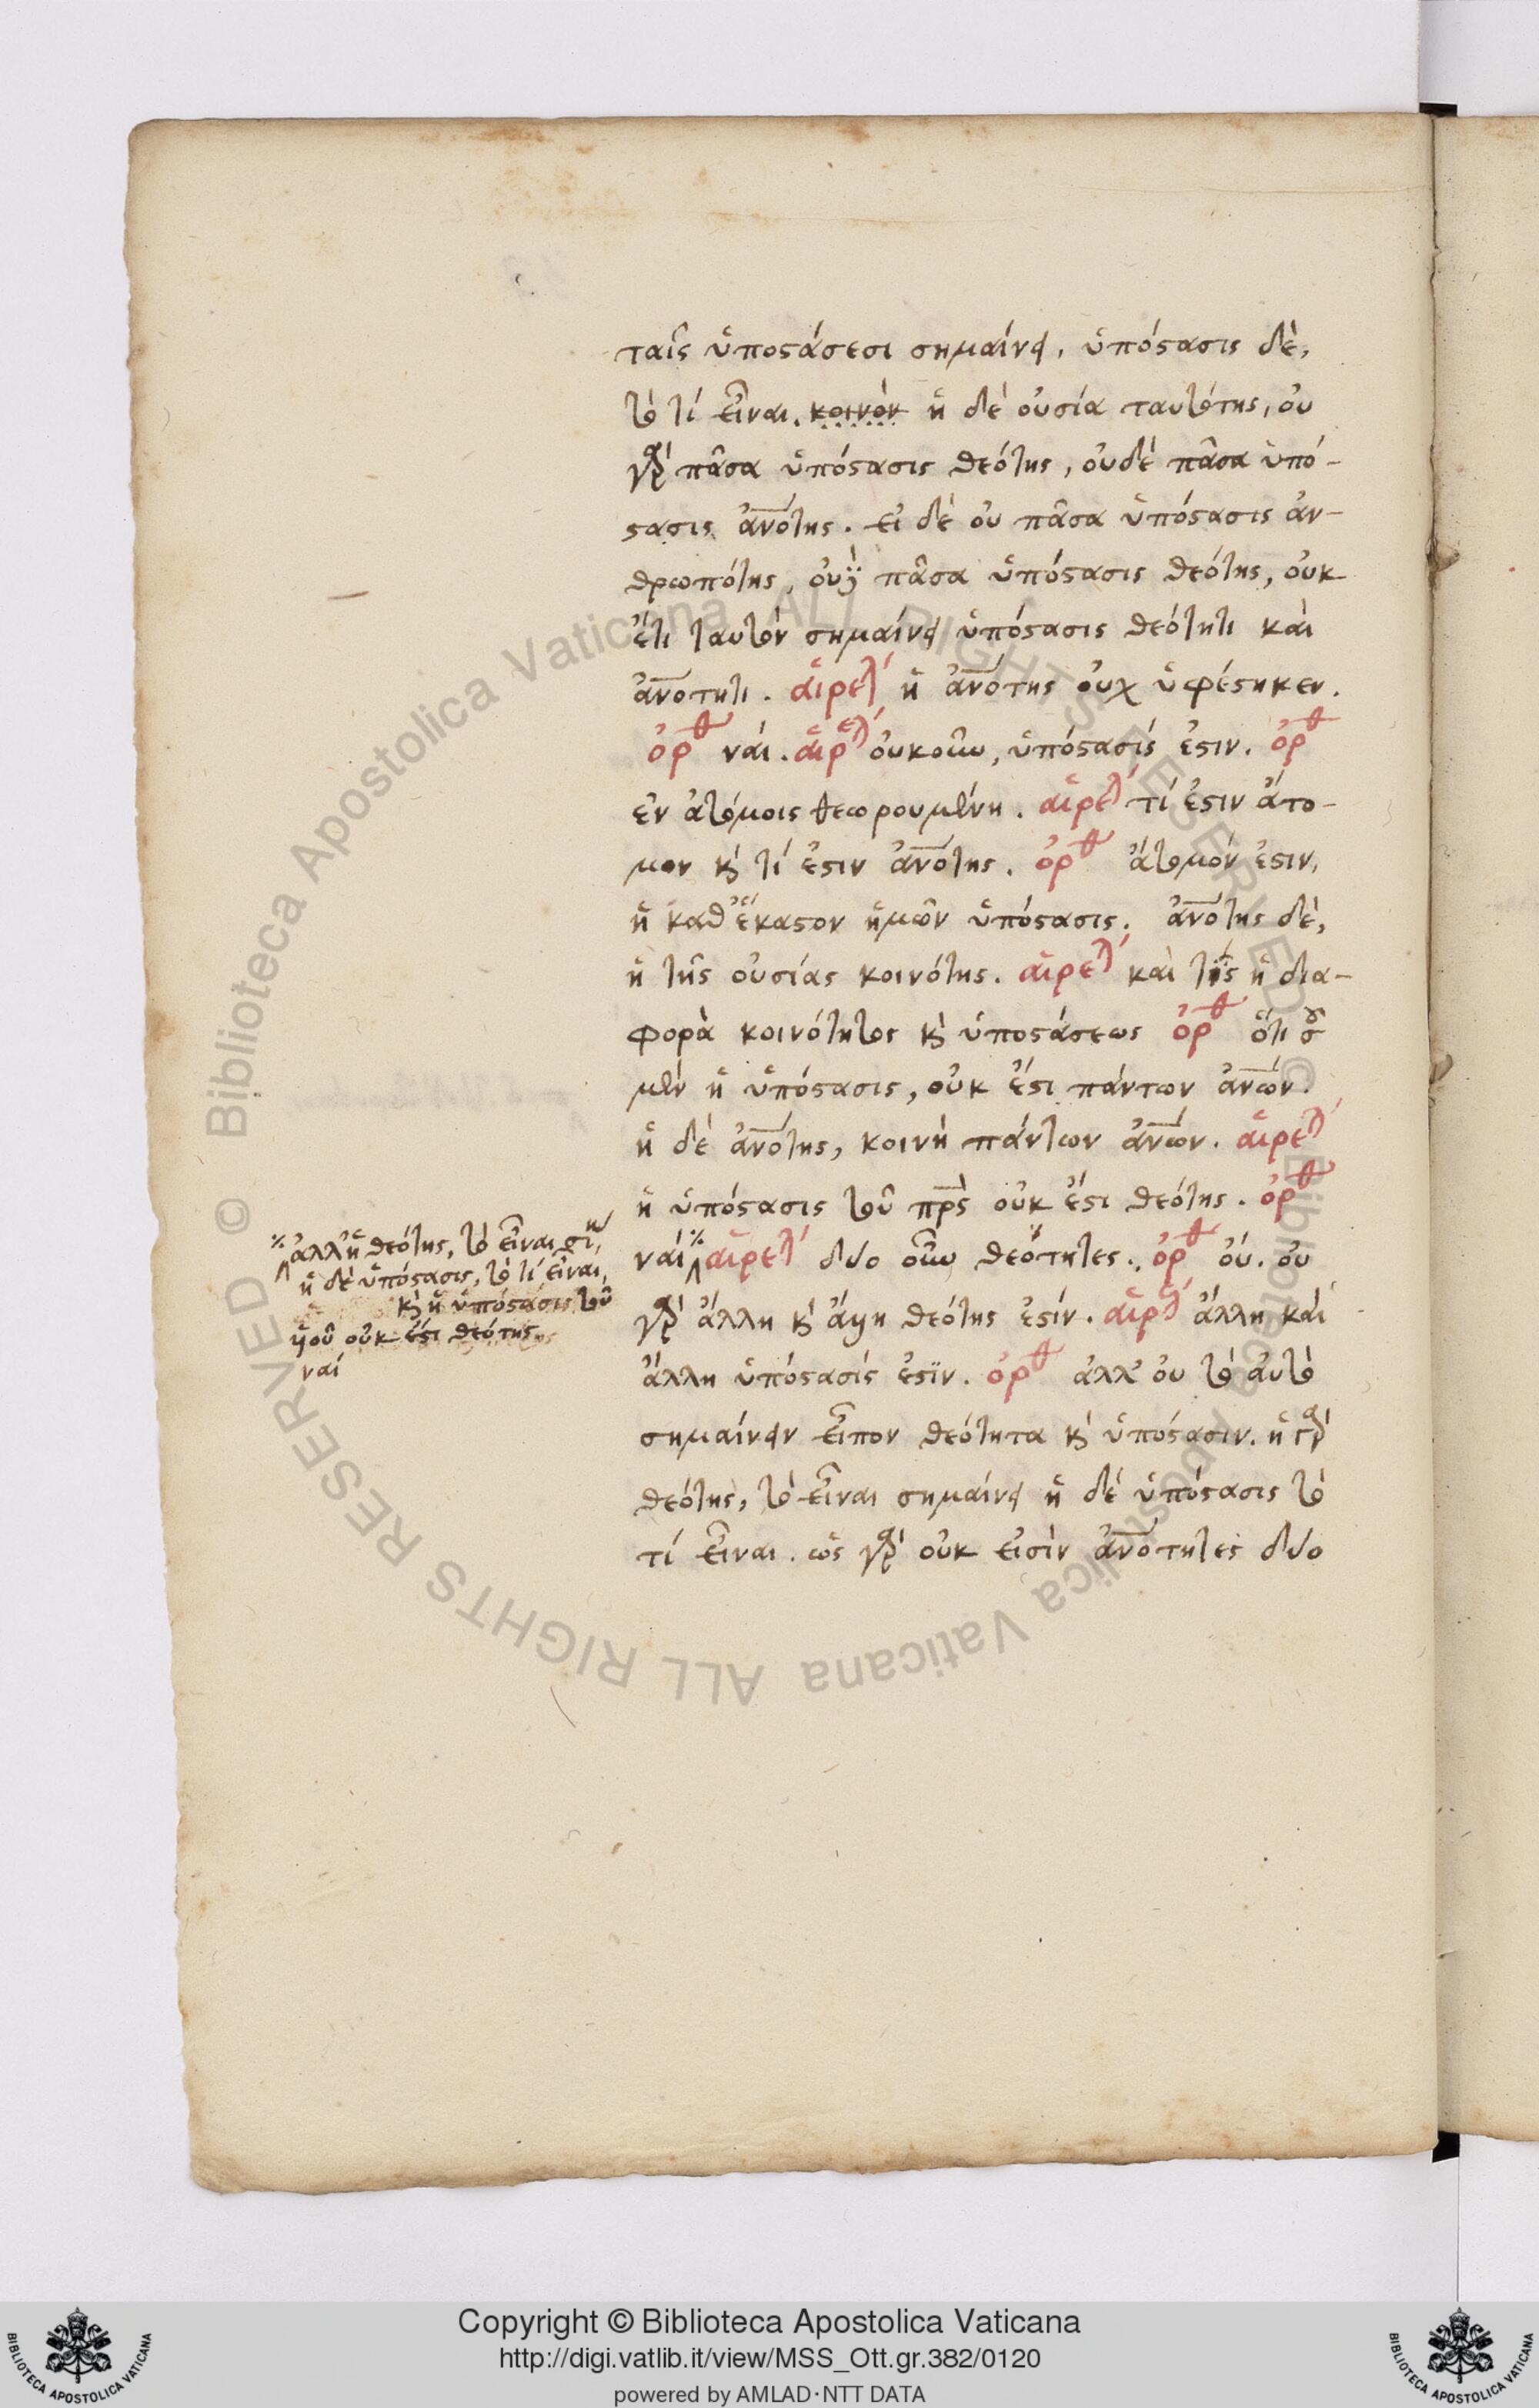 ταῖς ὑποστάσεσι σημαίνει, ὑπόστασις δὲ,
τὸ τί εἶναι. κοινὸν ἡ δὲ οὐσία ταυτότης, οὐ
γὰρ πᾶσα ὑπόστασις θεότης, οὐδὲ πᾶσα ὑπό-
στασις ἀν̅ότης. εἰ δὲ οὐ πᾶσα ὑπόστασις ἀν-
θρωπότης, οὐχὶ πᾶσα ὑπόστασις θεότης, οὐκ
ἔτι ταυτὸν σημαίνει ὑπόστασις θεότητι καὶ
ἀν̅οτητι. αἱρετ ἡ ἀν̅ότης οὐχ ὑφέστηκεν.
ὀρθ ναί. αἱρετ οὐκοῦν, ὑπόστασίς ἐστιν. ὀρθ
ἐν ἀτόμοις θεωρουμένη. αἱρετ τί ἐστιν ἄτο-
μον κὶ τί ἐστιν ἀν̅ότης. ὀρθ ἄτομόν ἐστιν,
ἡ καθ' ἕκαστον ἡμῶν ὑπόστασις. ἀν̅ότης δὲ,
ἡ τῆς οὐσίας κοινότης. αἱρετ καὶ τίς ἡ δια-
φορὰ κοινότητος κὶ ὑποστάσεως ὀρθ ὅτι σου
μὲν ἡ ὑπόστασις, οὐκ ἔστι πάντων ἀν̅ων.
ἡ δὲ ἀν̅ότης, κοινὴ πάντων ἀν̅ων. αἱρετ
ἡ ὑπόστασις τοῦ πρ̅ς οὐκ ἔστι θεότης. ὀρθ
ναί αἱρετ δύο οὖν θεότητες. ὀρθ οὔ. οὐ
γὰρ ἄλλη κὶ ἄλλη θεότης ἐστίν. αἱρετ ἄλλη καὶ
ἄλλη ὑπόστασίς ἐστϊν. ὀρθ ἀλλ' οὐ τὸ αὐτὸ
σημαίνειν εἶπον θεότητα κὶ ὑπόστασιν. ἡ γὰρ
θεότης, τὸ εἶναι σημαίνει ἡ δὲ ὑπόστασις τὸ
τί εἶναι. ὡς γὰρ οὐκ εἰσὶν ἀν̅οτητες δύο
ἀλλ' ἡ θεότης, τὸ εἶναι ση
ἡ δὲ ὑπόστασις, τὸ τί εἶναι,
κὶ ἡ ὑπόστασις τοῦ
οὐκ ἔστι θεότης
ναί
Copyright © Biblioteca Apostolica Vaticana
http://digi.vatlib.it/view/MSS_Ott.gr.382/0120
powered by AMLAD·NTT DATA